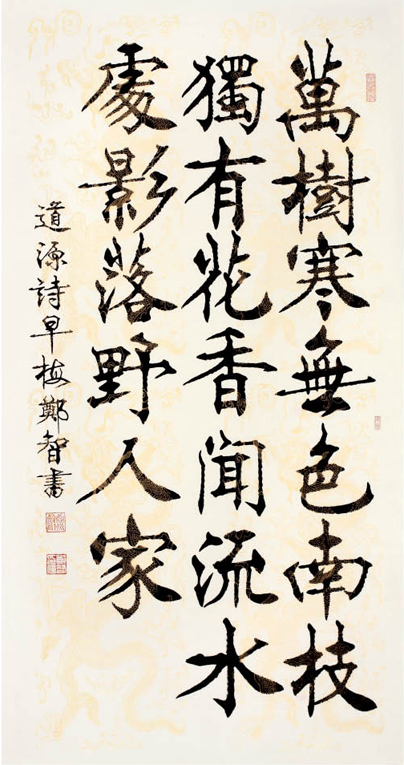 萬樹寒無色南枝
獨有花香聞流水
處影落野人家
道源詩早梅鄭智書